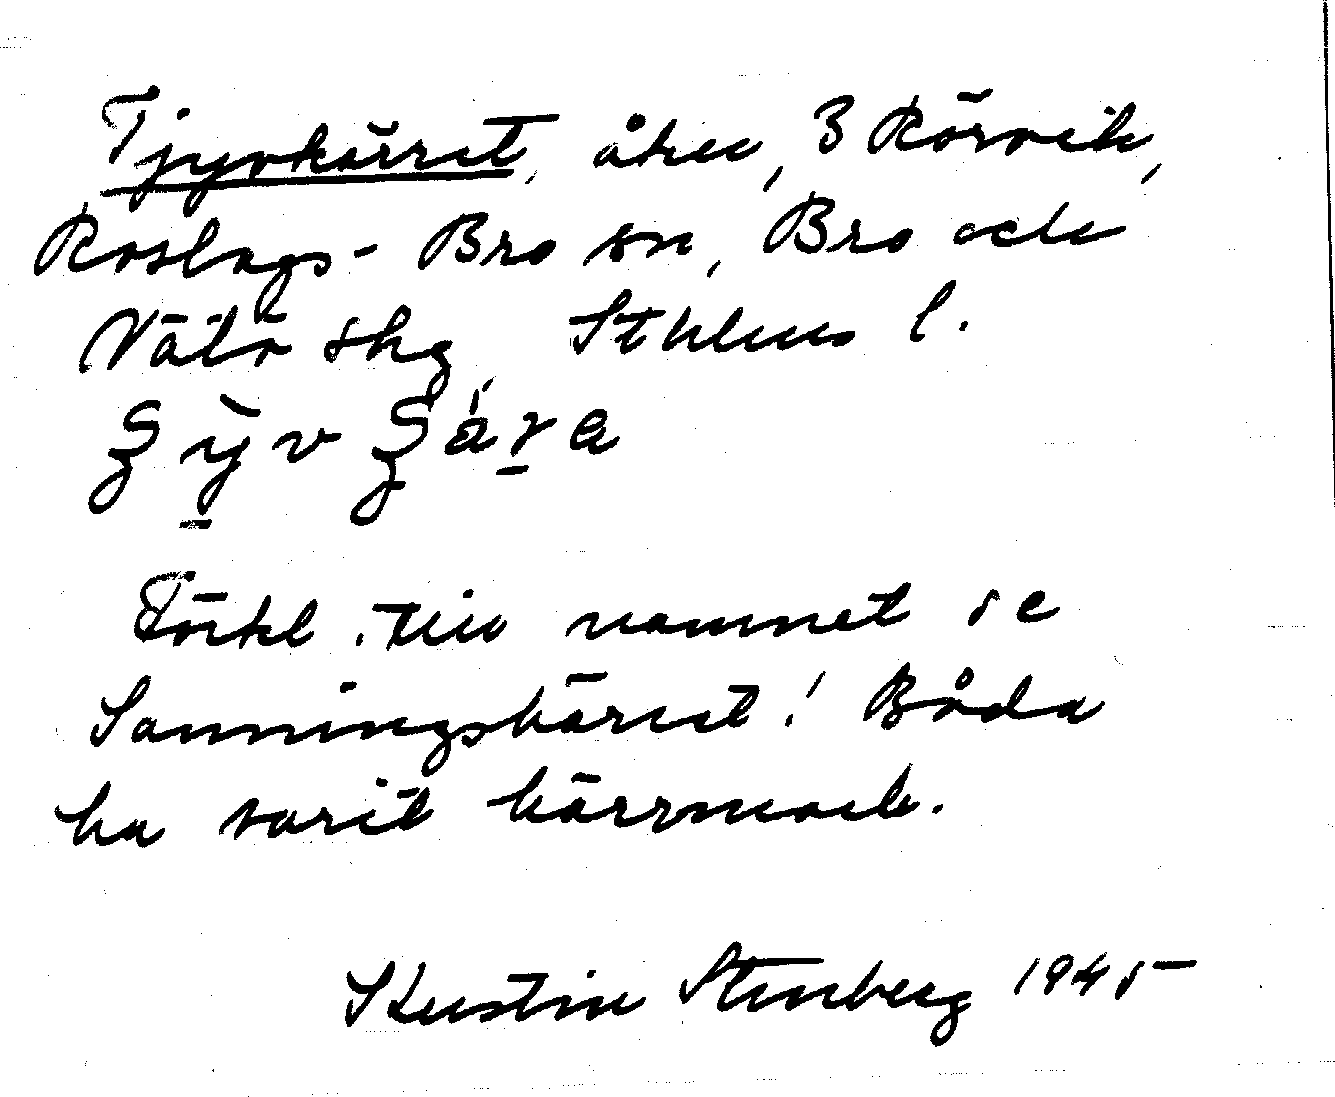 Tjyvkärret, åker, 3 Rörvik,
Roslags-Bro sn, Bro och
Vätö skg, Sthlms l.
Förkl. till namnet se
Sanningskärret! Båda
ha varit kärrmark.
Kerstin Stenberg 1945